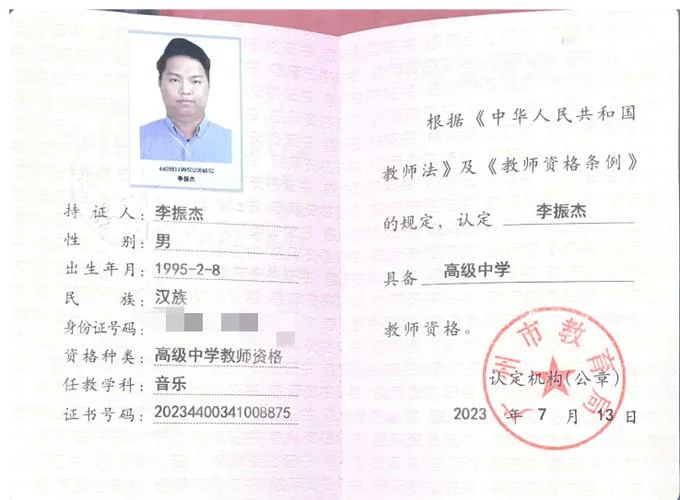 李振杰
持 证 人：李振杰
性 别：男
出生年月：1995-2-8
民 族：汉族
身份证号码：
资格种类：高级中学教师资格
任教学科：音乐
证书号码：20234400341008875
根据《中华人民共和国
教师法》及《教师资格条例》
的规定，认定 李振杰
具备 高级中学
教师资格。
广州市教育局
认定机构(公章)
2023 年 7 月 13 日